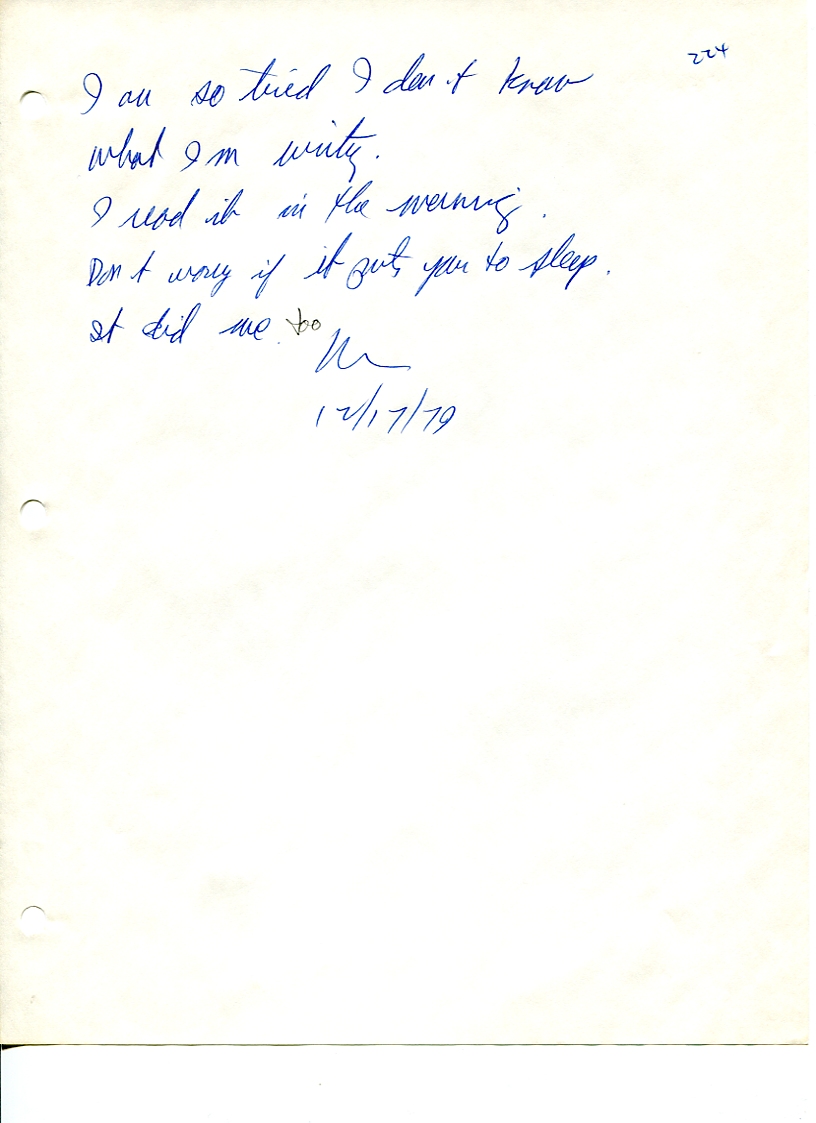 224
I am so tired I don't know
what I'm writing.
I read it in the morning.
Don't worry if it puts you to sleep.
It did me too
12/17/79